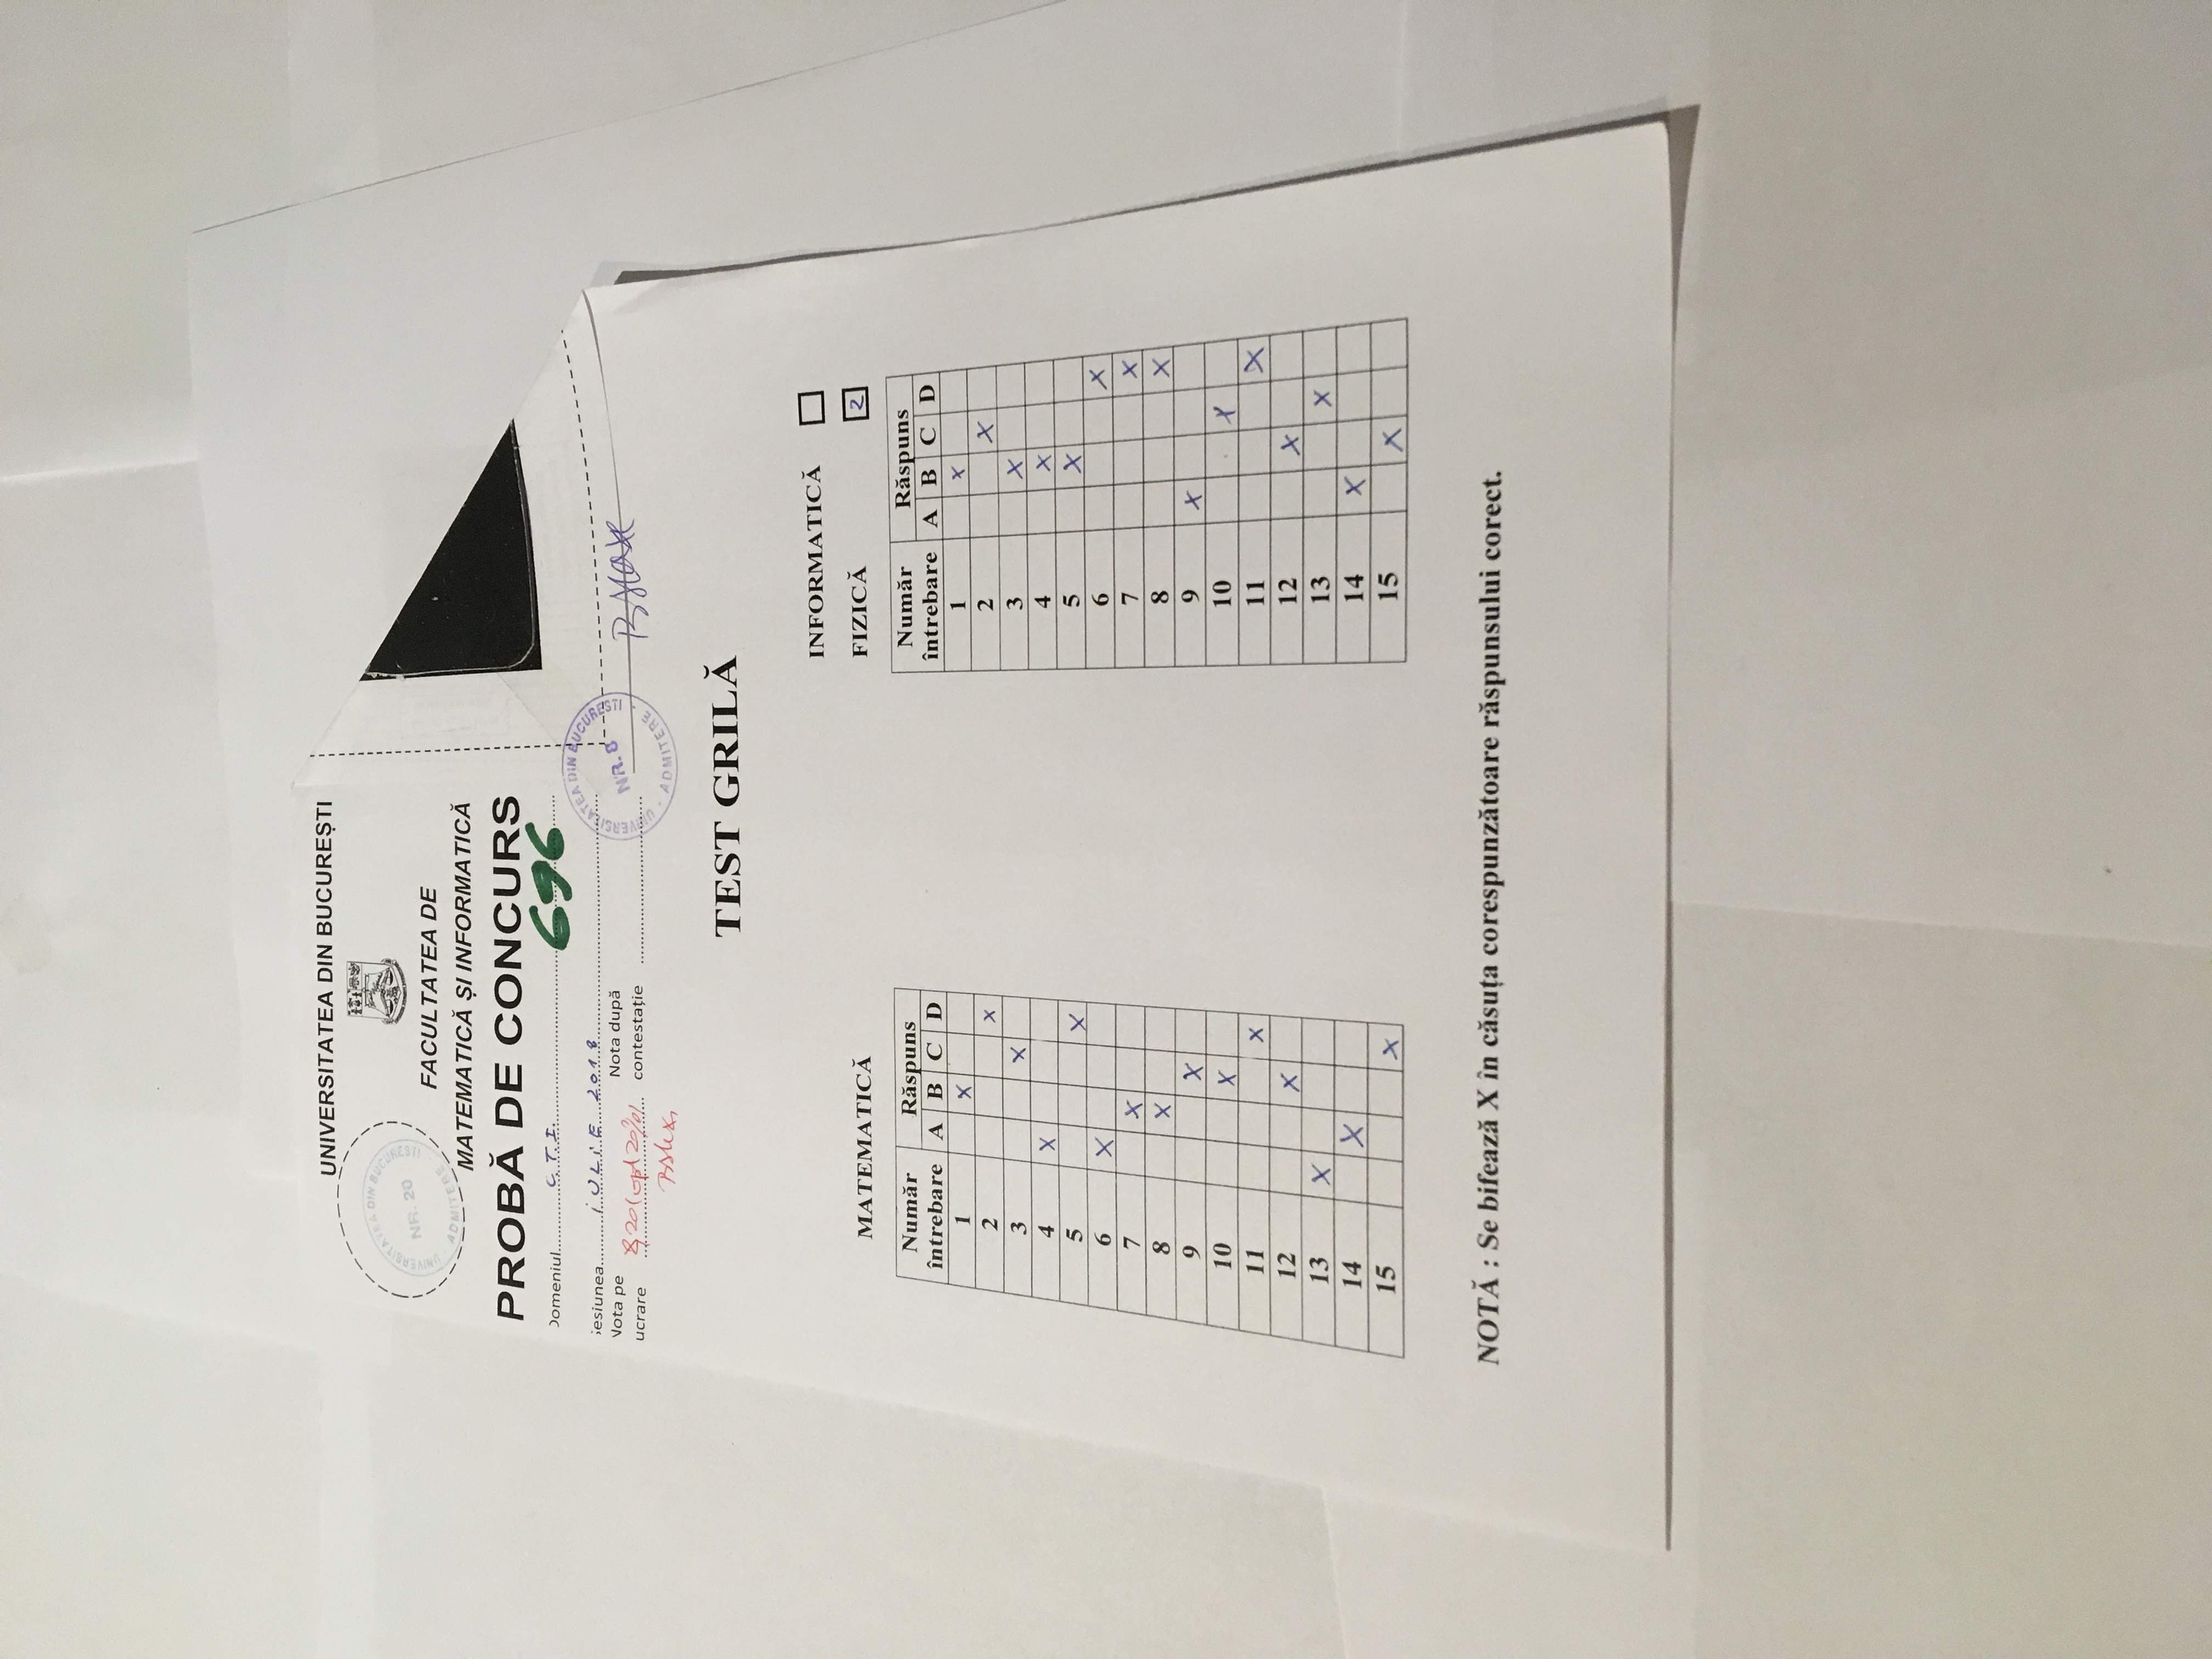 UNIVERSITATEA DIN BUCUREȘTI
UNIVERSITATEA DIN BUCUREȘTI
NR. 20
ADMITERE
FACULTATEA DE
MATEMATICĂ ȘI INFORMATICĂ
PROBĂ DE CONCURS
Domeniul C.T.I. 696
Sesiunea iULiE 2018
Nota pe
lucrare
Nota după
contestație
UNIVERSITATEA DIN BUCUREȘTI
NR. 8
ADMITERE
TEST GRILĂ
INFORMATICĂ
FIZICĂ 2
MATEMATICĂ
Număr întrebare Răspuns
A B C D
1 X
2 X
3 X
4 X
5 X
6 X
7 X
8 X
9 X
10 X
11 X
12 X
13 X
14 X
15 X
Număr întrebare Răspuns
A B C D
1 X
2 X
3 X
4 X
5 X
6 X
7 X
8 X
9 X
10 X
11 X
12 X
13 X
14 X
15 X
NOTĂ : Se bifează X în căsuța corespunzătoare răspunsului corect.